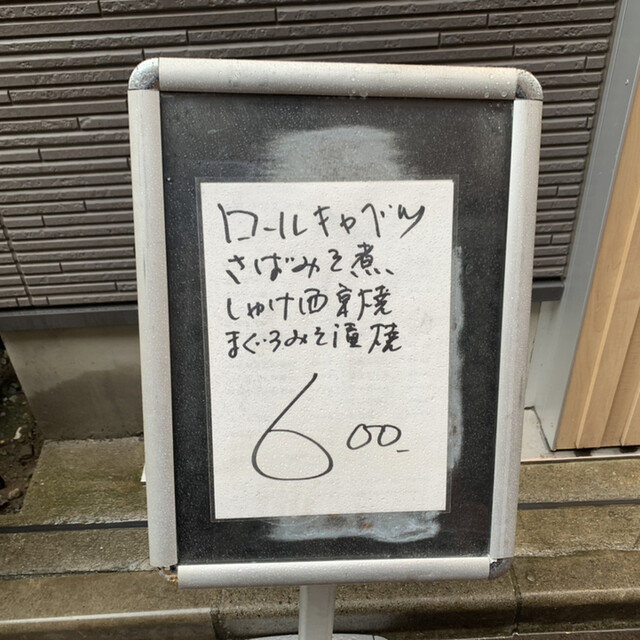 ロールキャベツ
さばみそ煮
しゃけ西京焼
まぐろみそ漬焼
600-